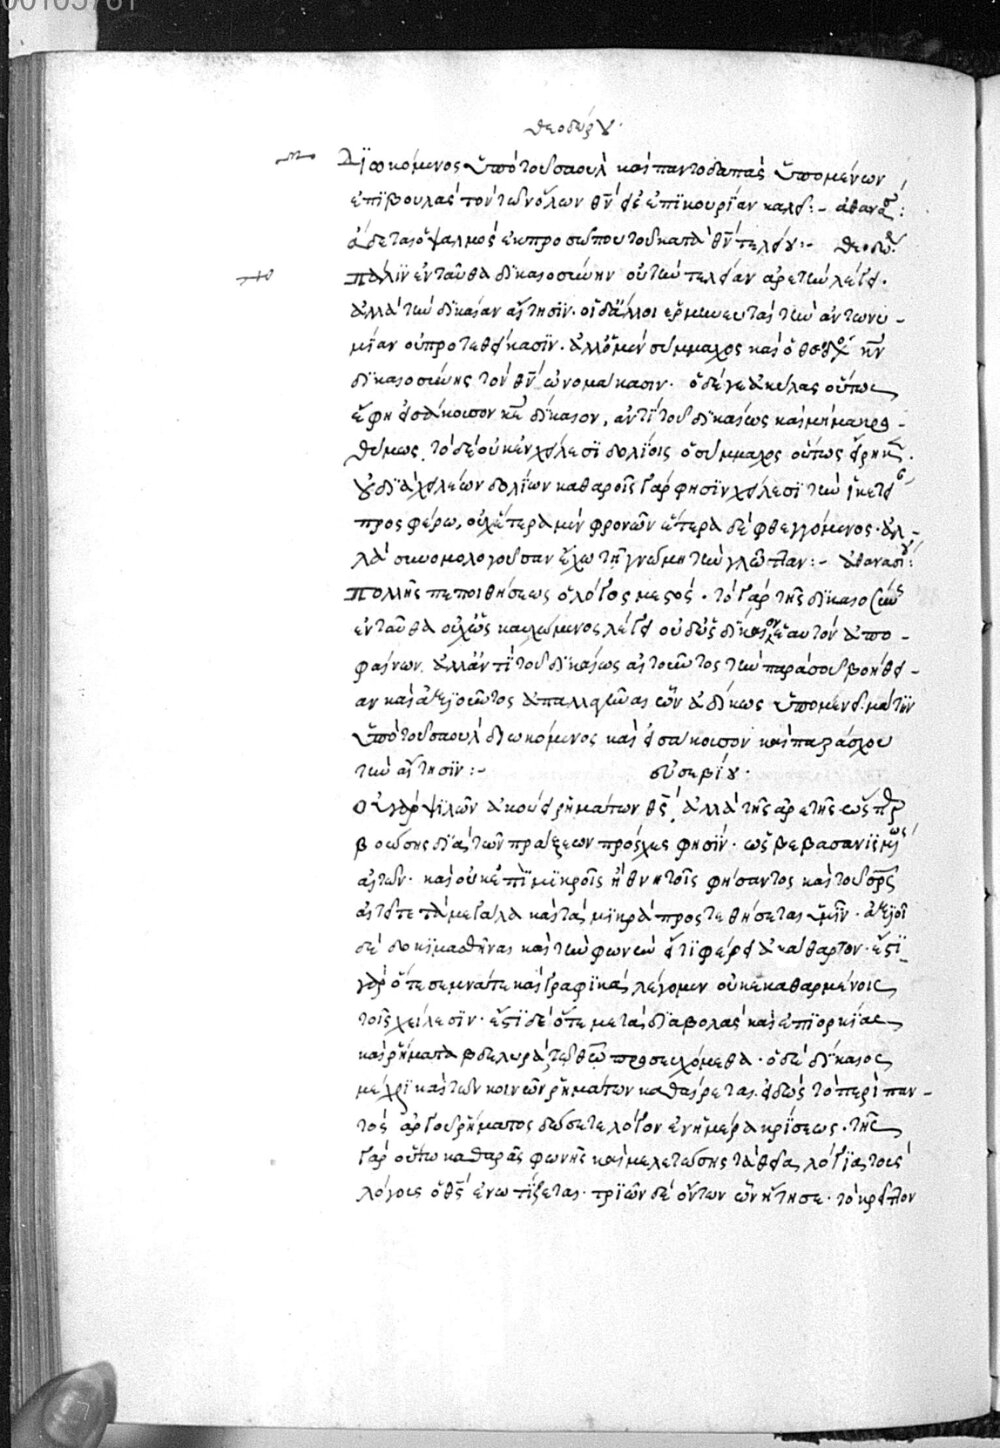 00105761
θεοδώρου.
Διωκόμενος ὑπὸ τοῦ σαοὺλ καὶ παντοδαπὰς ὑπομένων
ἐπιβουλὰς τὸν τῶν ὅλων θν̄ εἰς ἐπικουρίαν καλεῖ:- ἀθανασ:
ἄδεται ὁ ψαλμὸς ἐκ προσώπου τοῦ κατὰ θν̄ τελείου:- θεοδω
πάλιν ἐνταῦθα δικαιοσύνην οὐ τὴν τελείαν ἀρετὴν λέγει.
ἀλλὰ τὴν δικαίαν αἴτησιν. οἱ δὲ ἄλλοι ἑρμηνευταὶ τὴν ἀντωνυ-
μίαν οὐ προτεθείκασιν. ἀλλ' ὁ μὲν σύμμαχος καὶ ὁ θεοδο κν̄
δικαιοσύνης τὸν θν̄ ὠνομάκασιν. ὁ δέ γε ἀκύλας οὕτως
ἔφη εἰσάκουσον κε̄ δίκαιον, ἀντὶ τοῦ δικαίως καὶ μὴ μακρο-
θύμως. τὸ δὲ οὐκ ἐν χείλεσι δολίοις ὁ σύμμαχος οὕτως εἴρηκ.
οὐ διὰ χειλέων δολίων καθαροῖς γὰρ φησὶν χείλεσι τὴν ἱκετεί
προσφέρω, οὐχ ἕτερα μὲν φρονῶν ἕτερα δὲ φθεγγόμενος. ἀλ-
λὰ συνομολογοῦσαν ἔχω τῇ γνώμῃ τὴν γλῶτταν:- ἀθανασίου:
Πολλῆς πεποιθήσεως ὁ λόγος μεστός. τὸ γὰρ τῆς δικαιοσύνης
ἐνταῦθα οὐχ ὡς καυχώμενος λέγει οὐδ' ὡς δίκαιον ἑαυτὸν ἀπο-
φαίνων. ἀλλ' ἀντὶ τοῦ δικαίως αἰτοῦντος τὴν παρά σου βοήθει-
αν καὶ ἀξιοῦντος ἀπαλλαγῆναι ὧν ἀδίκως ὑπομένει. μάτην
ὑπὸ τοῦ σαοὺλ διωκόμενος καὶ εἰσάκουσον καὶ παράσχου
τὴν αἴτησιν:- εὐσεβίου.
Οὐ γὰρ ψιλῶν ἀκούει ῥημάτων θς̄, ἀλλὰ τῆς ἀρετῆς
βοώσης διὰ τῶν πράξεων πρόσχες φησίν. ὡς βεβασανισμένως
αἰτῶν. καὶ οὐκ ἐπὶ μικροῖς ἢ θνητοῖς φήσαντος καὶ τοῦ σρ̄ς
αἰτεῖτε τὰ μεγάλα καὶ τὰ μικρὰ προστεθήσεται ὑμῖν. ἀξιοῖ
δὲ δοκιμασθῆναι καὶ τὴν φωνὴν εἴ τι φέρει ἀκάθαρτον. ἔστι
γὰρ ὅτε σεμνά τε καὶ γραφικὰ λέγομεν οὐ κεκαθαρμένοις
τοῖς χείλεσιν. ἔστι δὲ ὅτε μετὰ διαβολὰς καὶ ἐπιορκίας
καὶ ῥήματα βδελυρὰ τῷ θῶ προσευχόμεθα. ὁ δὲ δίκαιος
μέχρι καὶ τῶν κοινῶν ῥημάτων καθαίρεται. εἰδὼς τὸ περὶ παν-
τὸς ἀργοῦ ῥήματος δώσετε λόγον ἐν ἡμέρα κρίσεως. τῆς
γὰρ οὕτω καθαρᾶς φωνῆς καὶ μελετώσης τὰ θεῖα λόγια τοὺς
λόγους ὁ θς̄ ἐνωτίζεται. τριῶν δὲ ὄντων ὧν ᾔτησε. τὸ κρεῖττον